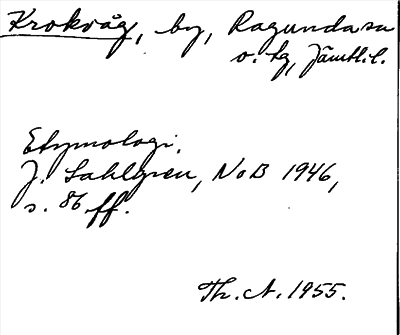 Krokvåg, by, Ragunda sn
o. tg, Jämtl. l.
Etymologi.
J. Sahlgren, NoB 1946,
s. 86 ff.
Th. A. 1955.